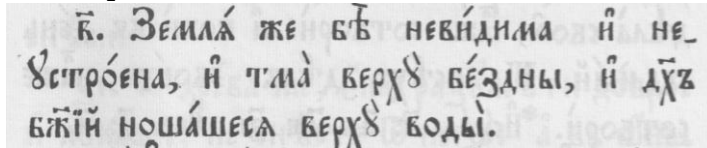 в҃. Землѧ́ же бѣ̀ неви́дима и҆ не_
ꙋстро́ена, и҆ тма̀ верхꙋ̀ бе́здны, и҆ дх҃ъ
бж҃їй ноша́шесѧ верхꙋ̀ воды̀.